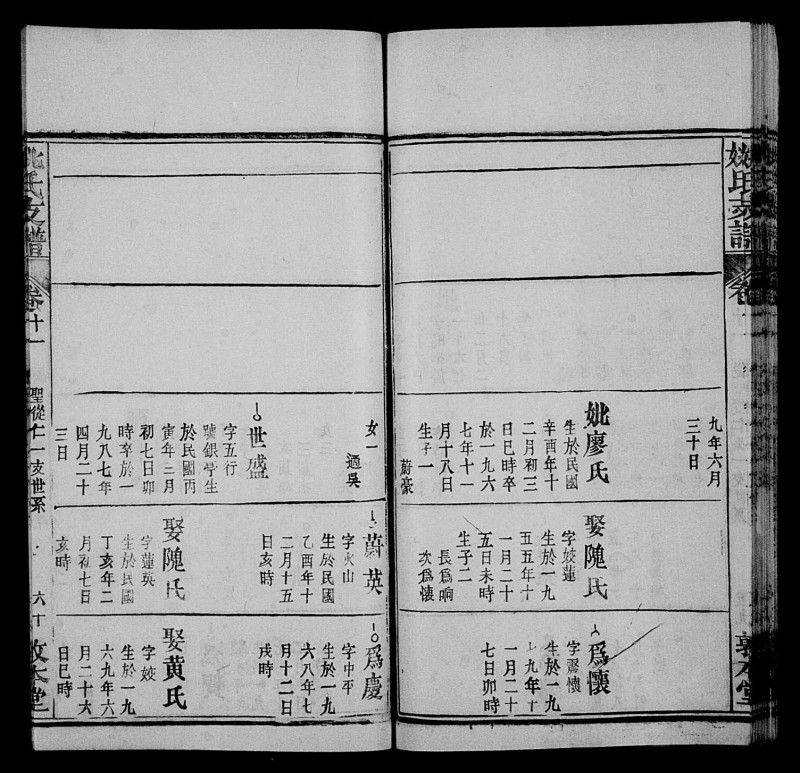 姚氏支譜
卷十一
敦本堂
九年六月
三十日
妣廖氏
生於民國
辛酉年十
二月初三
日巳時卒
於一九六
七年十一
月十八日
生子一
蔚豪
娶隗氏
字姣蓮
生於一九
五五年十
一月二十
五日未時
生子二
長為响
次為懷
為懷
字震懷
生於一九
七日卯時
一月二十
女一
適吳
世盛
字五行
號銀亭生
於民國丙
寅年三月
初七日卯
時卒於一
九八七年
四月二十
三日
蔚英
字火山
生於民國
乙酉年十
二月十五
日亥時
娶隗氏
字蓮英
生於民國
丁亥年二
月初七日
亥時
為慶
字中平
生於一九
六八年七
月十二日
戌時
娶黃氏
字姣
生於一九
六九年六
月二十六
日巳時
姚氏支譜
卷十一
聖從仁一支世系
六十
敦本堂